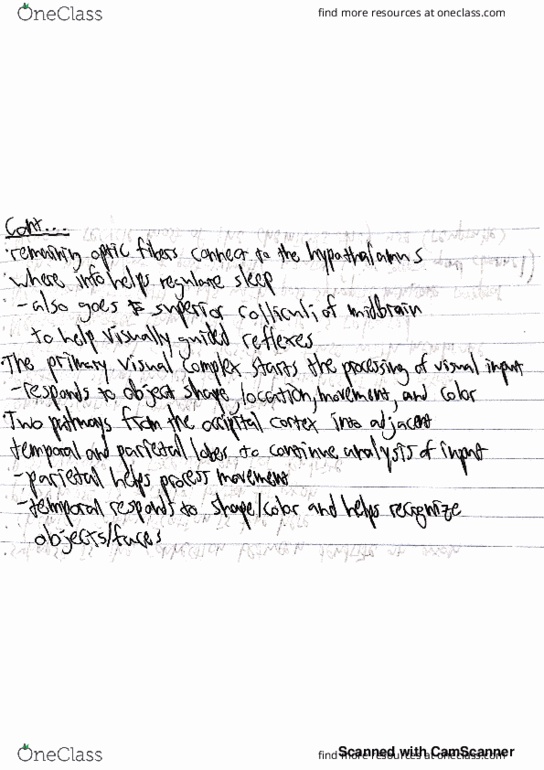 OneClass
find more resources at oneclass.com
Cont....
·remaining optic fibers connect to the hypothalamus
·where info helps regulate sleep
-also goes to superior colliculi of midbrain
to help visually guided reflexes
·The primary visual complex starts the processing of visual input
-responds to object shape, location, movement, and color
·Two pathways from the occipital cortex into adjacent
temporal and parietal lobes to continue analysis of input
-parietal helps process movement
-temporal responds to shape/color and helps recognize
objects/faces
OneClass
find more resources at oneclass.com
Scanned with CamScanner